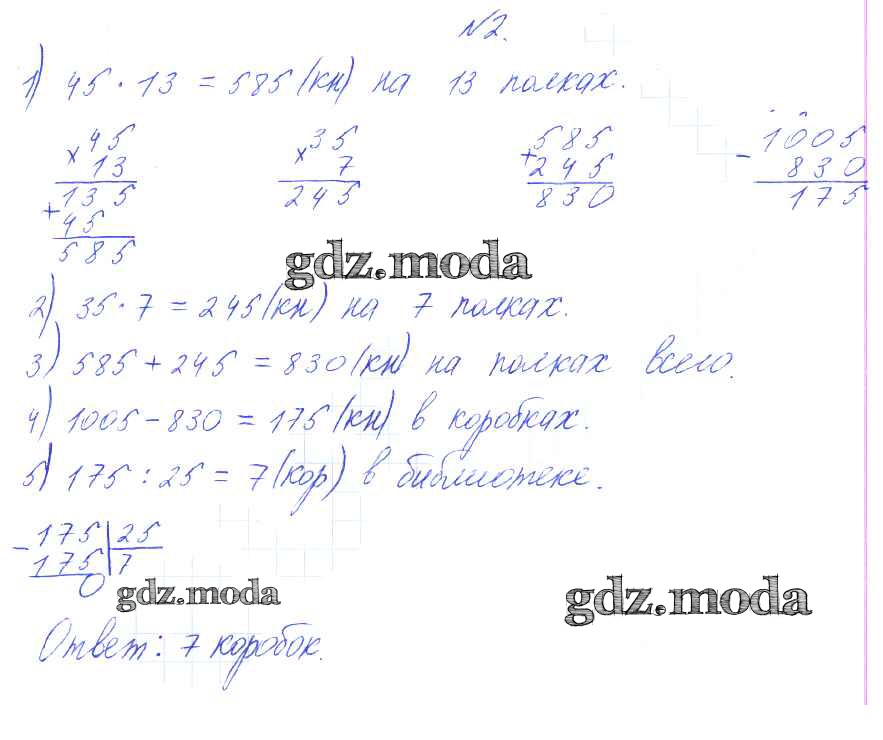 №2.
1) 45 · 13 = 585 (кн) на 13 полках.
× 45
13
+ 135
45
585
× 35
7
245
+ 585
245
830
- 1005
830
175
gdz.moda
2) 35 · 7 = 245 (кн) на 7 полках.
3) 585 + 245 = 830 (кн) на полках всего.
4) 1005 - 830 = 175 (кн) в коробках.
5) 175 : 25 = 7 (кор) в библиотеке.
- 175 | 25
175 | 7
0
gdz.moda
gdz.moda
Ответ: 7 коробок.